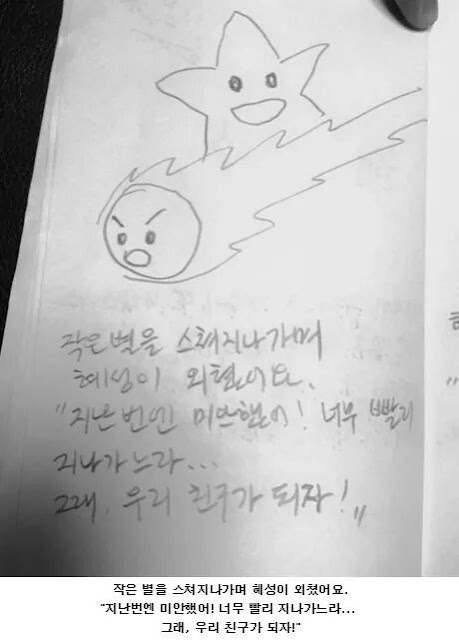 작은 별을 스쳐지나가며
혜성이 외쳤어요.
"지난번엔 미안했어! 너무 빨리
지나가느라...
그래, 우리 친구가 되자!"
작은 별을 스쳐지나가며 혜성이 외쳤어요.
"지난번엔 미안했어! 너무 빨리 지나가느라...
그래, 우리 친구가 되자!"